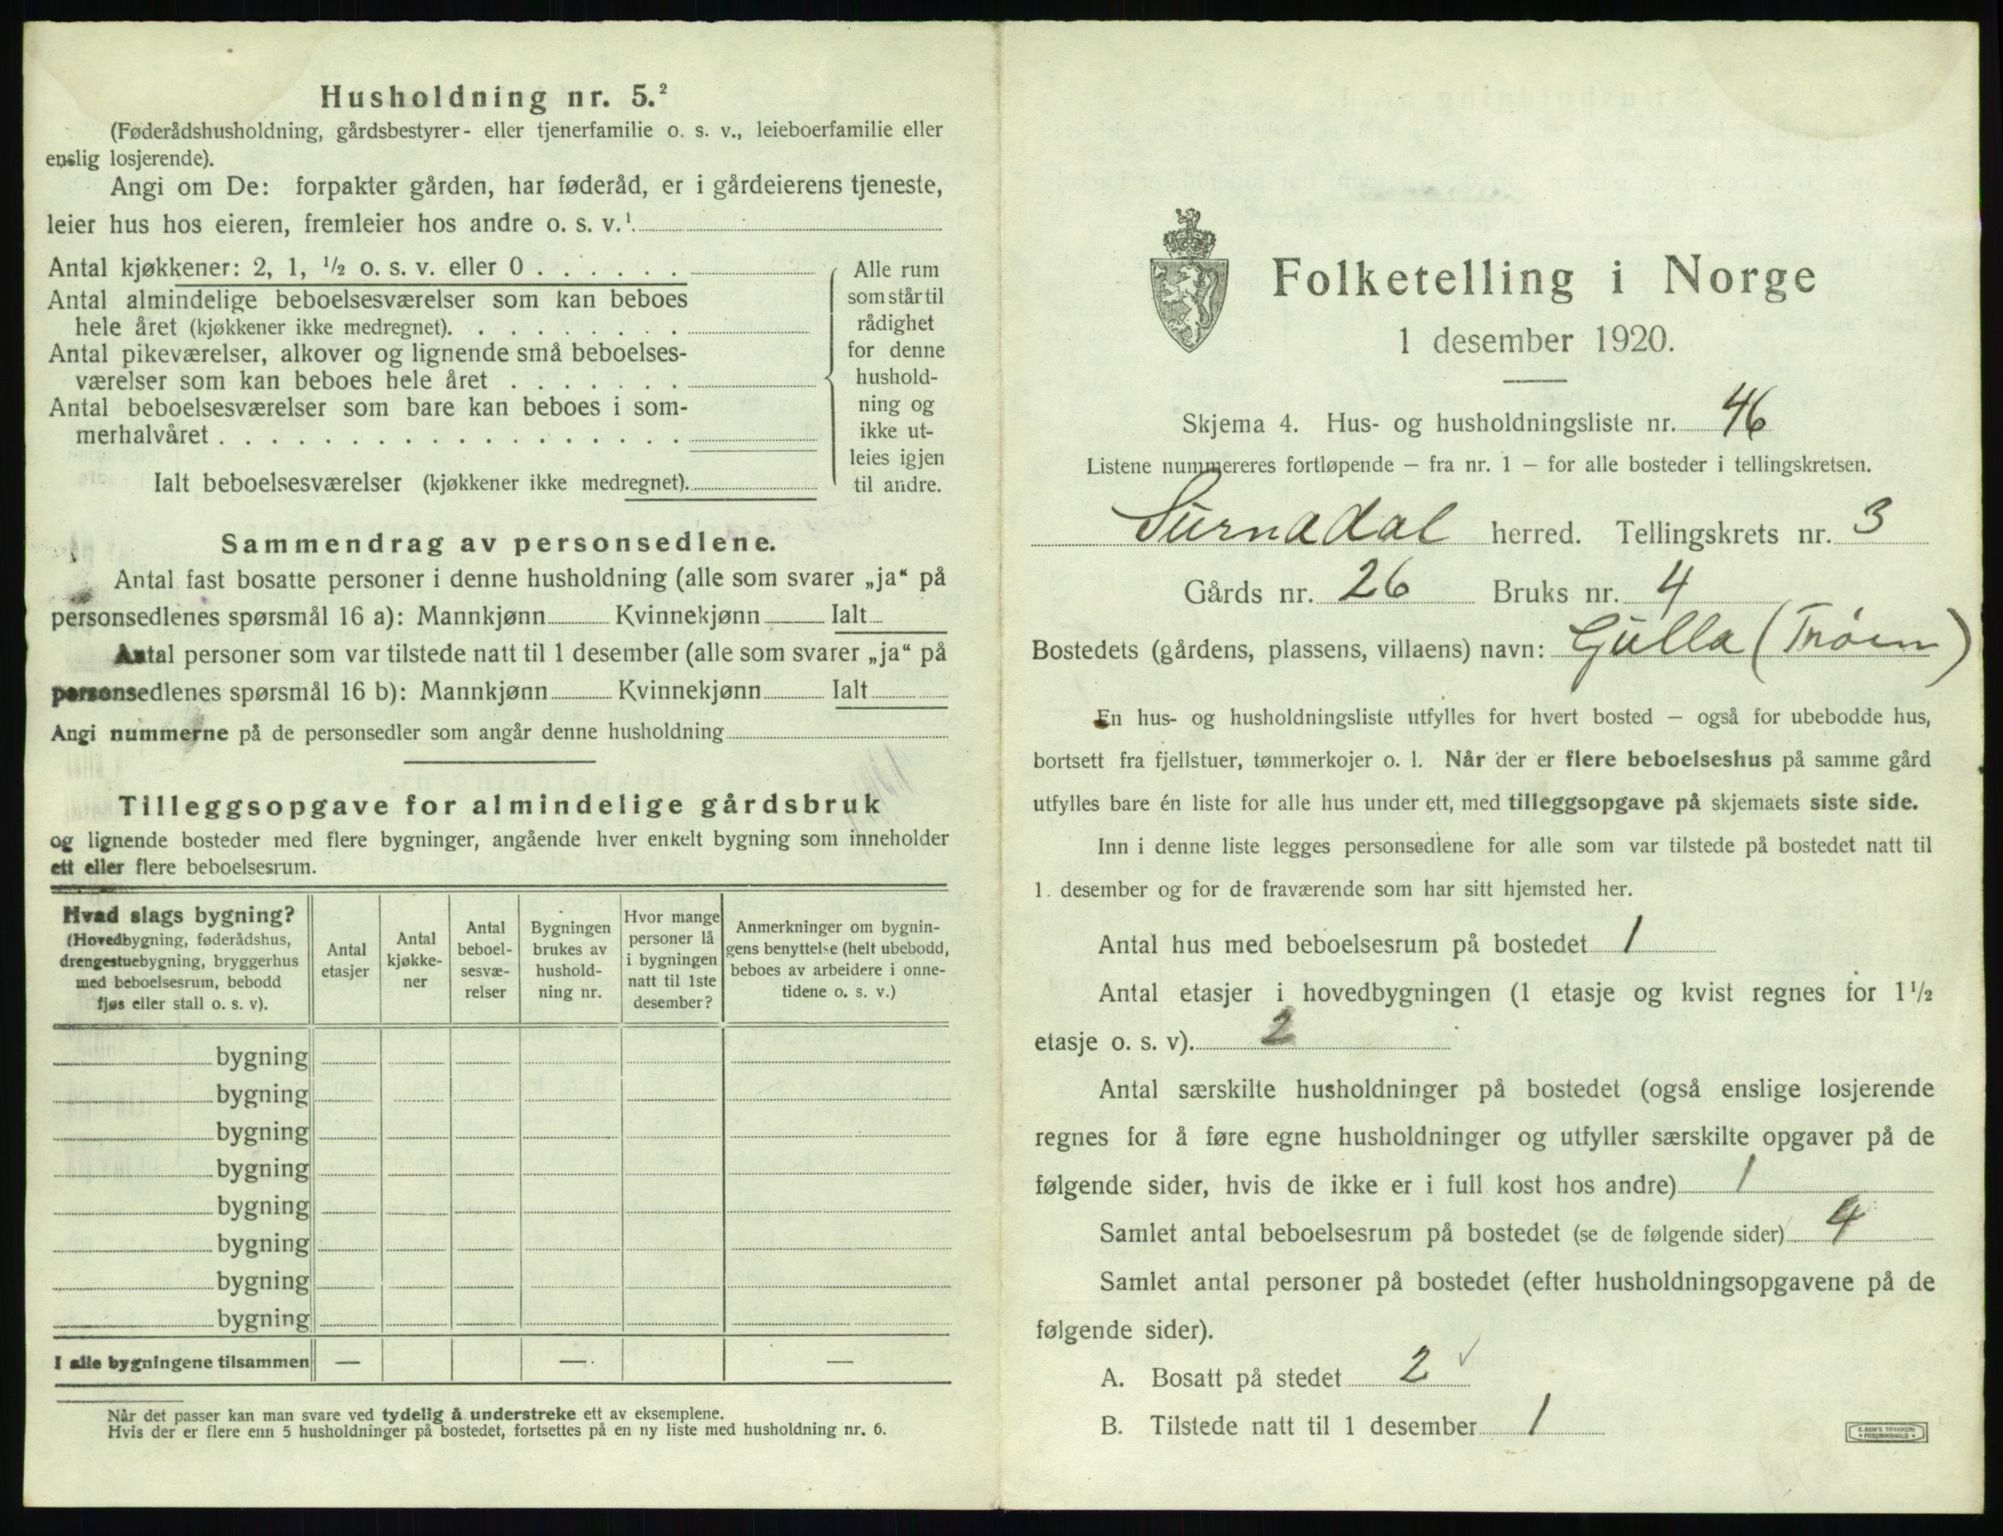 Husholdning nr. 5.²
(Føderådshusholdning, gårdsbestyrer- eller tjenerfamilie o. s. v., leieboerfamilie eller
enslig losjerende).
Angi om De: forpakter gården, har føderåd, er i gårdeierens tjeneste,
leier hus hos eieren, fremleier hos andre o. s. v.¹
Antal kjøkkener: 2, 1, ½ o. s. v. eller 0 . . . . . .
Antal almindelige beboelsesværelser som kan beboes
hele året (kjøkkener ikke medregnet). . . . . . . . .
Antal pikeværelser, alkover og lignende små beboelses-
værelser som kan beboes hele året . . . . . . .
Antal beboelsesværelser som bare kan beboes i som-
merhalvåret . . . . . . . . . . . . . . . . . .
Ialt beboelsesværelser (kjøkkener ikke medregnet).
Alle rum
som står til
rådighet
for denne
hushold-
ning og
ikke ut-
leies igjen
til andre.
Sammendrag av personsedlene.
Antal fast bosatte personer i denne husholdning (alle som svarer „ja“ på
personsedlenes spørsmål 16 a): Mannkjønn Kvinnekjønn Ialt
Antal personer som var tilstede natt til 1 desember (alle som svarer „ja“ på
personsedlenes spørsmål 16 b): Mannkjønn Kvinnekjønn Ialt
Angi nummerne på de personsedler som angår denne husholdning
Tilleggsopgave for almindelige gårdsbruk
og lignende bosteder med flere bygninger, angående hver enkelt bygning som inneholder
ett eller flere beboelsesrum.
Hvad slags bygning?
(Hovedbygning, føderådshus,
drengestuebygning, bryggerhus
med beboelsesrum, bebodd
fjøs eller stall o. s. v).
Antal
etasjer
Antal
kjøkke-
ner
Antal
beboel-
sesvæ-
relser
Bygningen
brukes av
hushold-
ning nr.
Hvor mange
personer lå
i bygningen
natt til 1ste
desember?
Anmerkninger om bygnin-
gens benyttelse (helt ubebodd,
beboes av arbeidere i onne-
tidene o. s. v.)
bygning
bygning
bygning
bygning
bygning
bygning
bygning
bygning
I alle bygningene tilsammen — — —
Når det passer kan man svare ved tydelig å understreke ett av eksemplene.
Hvis der er flere enn 5 husholdninger på bostedet, fortsettes på en ny liste med husholdning nr. 6.
Folketelling i Norge
1 desember 1920.
Skjema 4. Hus- og husholdningsliste nr. 46
Listene nummereres fortløpende – fra nr. 1 – for alle bosteder i tellingskretsen.
Surnadal herred. Tellingskrets nr. 3
Gårds nr. 26 Bruks nr. 4
Bostedets (gårdens, plassens, villaens) navn: Gulla (Trøen)
En hus- og husholdningsliste utfylles for hvert bosted – også for ubebodde hus,
bortsett fra fjellstuer, tømmerkojer o. l. Når der er flere beboelseshus på samme gård
utfylles bare én liste for alle hus under ett, med tilleggsopgave på skjemaets siste side.
Inn i denne liste legges personsedlene for alle som var tilstede på bostedet natt til
1. desember og for de fraværende som har sitt hjemsted her.
Antal hus med beboelsesrum på bostedet 1
Antal etasjer i hovedbygningen (1 etasje og kvist regnes for 1½
etasje o. s. v). 2
Antal særskilte husholdninger på bostedet (også enslige losjerende
regnes for å føre egne husholdninger og utfyller særskilte opgaver på de
følgende sider, hvis de ikke er i full kost hos andre) 1
Samlet antal beboelsesrum på bostedet (se de følgende sider) 4
Samlet antal personer på bostedet (efter husholdningsopgavene på de
følgende sider).
A. Bosatt på stedet 2 ✓
B. Tilstede natt til 1 desember 1